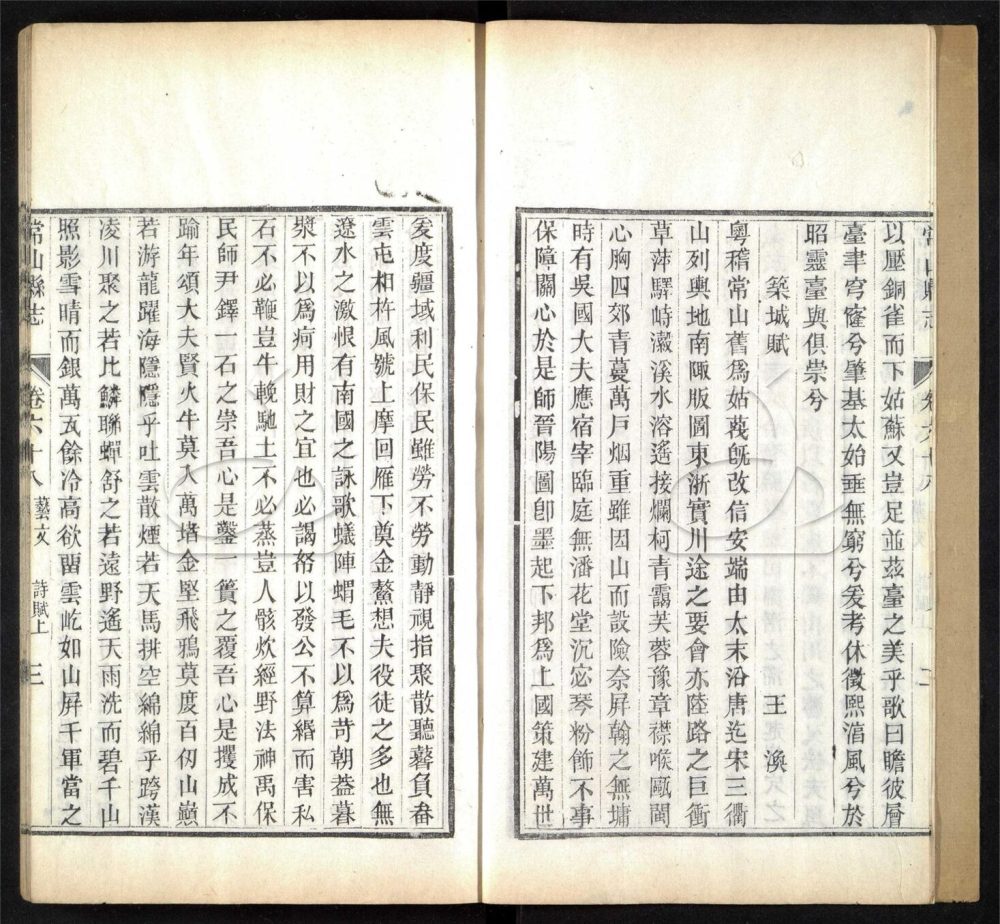 以壓銅雀而下姑蘇又豈足並茲臺之美乎歌曰瞻彼層
臺聿穹窿兮肇基太始垂無窮兮爰考休徵熙淯風兮於
昭靈臺與俱崇兮
築城賦 王渙
粵稽常山舊爲姑蔑旣改信安端由太末沿唐迄宋三衢
山列輿地南陬版圖東浙實川途之要會亦陸路之巨衝
草萍驛峙瀫溪水溶遙接爛柯青靄芙蓉豫章襟喉甌閩
心胸四郊青蔓萬戶烟重雖因山而設險奈屛翰之無墉
時有吳國大夫應宿宰臨庭無潘花堂沉宓琴粉飾不事
保障關心於是師晉陽圖卽墨起下邦爲上國策建萬世
爰度疆域利民保民雖勞不勞動靜視指聚散聽鼛負畚
雲屯相杵風號上摩回雁下奠金鰲想夫役徒之多也無
遼水之激恨有南國之詠歌蟻陣蝟毛不以爲苛朝鍫暮
漿不以爲疴用財之宜也必謁帑以發公不算緡而害私
石不必鞭豈牛輓馳土不必蒸豈人骸炊經野法神禹保
民師尹鐸一石之祟吾心是鑿一簣之覆吾心是攫成不
踰年頌大夫賢火牛莫入萬堵金堅飛鴉莫度百仞山巔
若游龍躍海隱隱乎吐雲散煙若天馬排空綿綿乎跨漢
凌川聚之若比鱗聯蟬舒之若遠野遙天雨洗而碧千山
照影雪晴而銀萬瓦餘冷高欲畱雲屹如山屛千軍當之
常山縣志 卷六十八 藝文 詩賦上 三